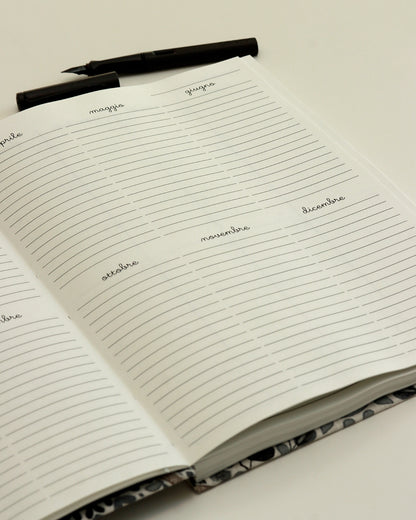 prile
maggio
giugno
mbre
ottobre
novembre
dicembre